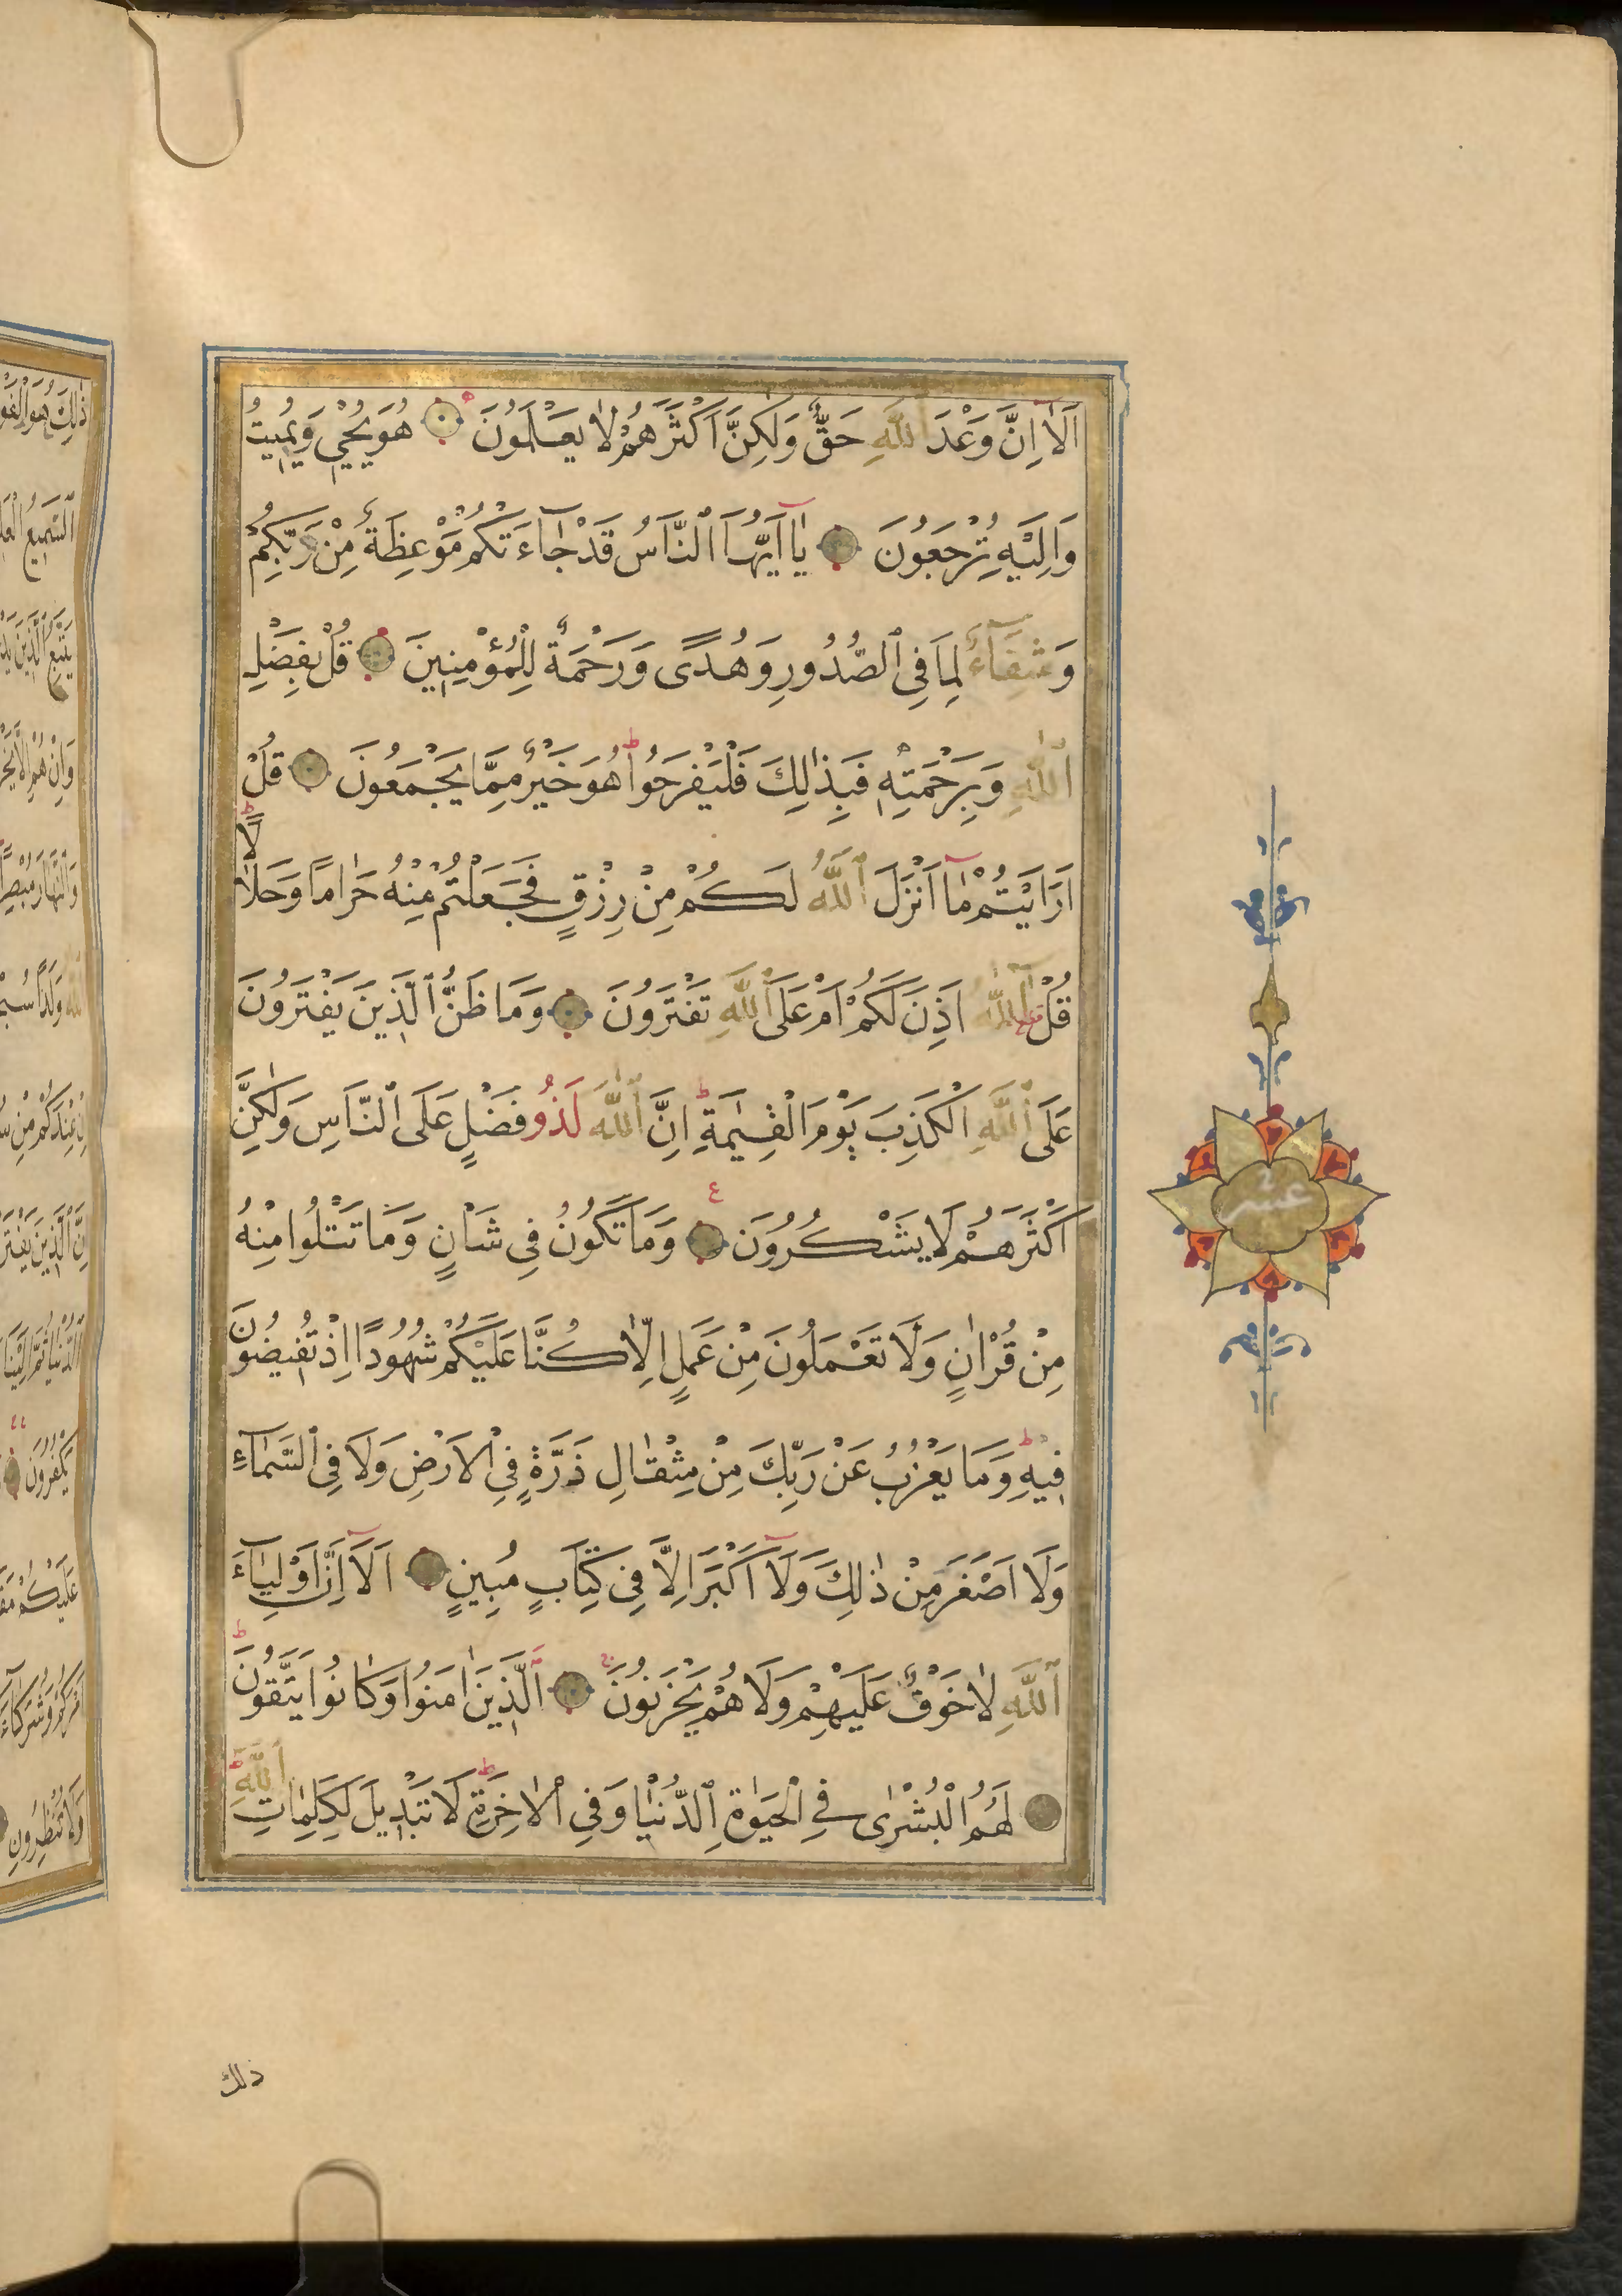 اَلَٓا اِنَّ وَعْدَ اللّٰهِ حَقٌّ وَلٰكِنَّ اَكْثَرَهُمْ لَا يَعْلَمُونَ هُوَ يُحْيٖ وَيُمٖيتُ
وَاِلَيْهِ تُرْجَعُونَ يَٓا اَيُّهَا النَّاسُ قَدْ جَٓاءَتْكُمْ مَوْعِظَةٌ مِنْ رَبِّكُمْ
وَشِفَٓاءٌ لِمَا فِي الصُّدُورِ وَهُدًى وَرَحْمَةٌ لِلْمُؤْمِنٖينَ قُلْ بِفَضْلِ
اللّٰهِ وَبِرَحْمَتِهٖ فَبِذٰلِكَ فَلْيَفْرَحُوا هُوَ خَيْرٌ مِمَّا يَجْمَعُونَ قُلْ
اَرَاَيْتُمْ مَٓا اَنْزَلَ اللّٰهُ لَكُمْ مِنْ رِزْقٍ فَجَعَلْتُمْ مِنْهُ حَرَامًا وَحَلَالًا
قُلْ اٰللّٰهُ اَذِنَ لَكُمْ اَمْ عَلَى اللّٰهِ تَفْتَرُونَ وَمَا ظَنُّ الَّذٖينَ يَفْتَرُونَ
عَلَى اللّٰهِ الْكَذِبَ يَوْمَ الْقِيٰمَةِ اِنَّ اللّٰهَ لَذُو فَضْلٍ عَلَى النَّاسِ وَلٰكِنَّ
اَكْثَرَهُمْ لَا يَشْكُرُونَ ع وَمَا تَكُونُ فٖي شَاْنٍ وَمَا تَتْلُوا مِنْهُ
مِنْ قُرْاٰنٍ وَلَا تَعْمَلُونَ مِنْ عَمَلٍ اِلَّا كُنَّا عَلَيْكُمْ شُهُودًا اِذْ تُفٖيضُونَ
فٖيهِ وَمَا يَعْزُبُ عَنْ رَبِّكَ مِنْ مِثْقَالِ ذَرَّةٍ فِي الْاَرْضِ وَلَا فِي السَّمَٓاءِ
وَلَٓا اَصْغَرَ مِنْ ذٰلِكَ وَلَٓا اَكْبَرَ اِلَّا فٖي كِتَابٍ مُبٖينٍ اَلَٓا اِنَّ اَوْلِيَٓاءَ
اللّٰهِ لَا خَوْفٌ عَلَيْهِمْ وَلَا هُمْ يَحْزَنُونَ اَلَّذٖينَ اٰمَنُوا وَكَانُوا يَتَّقُونَ
لَهُمُ الْبُشْرٰى فِي الْحَيٰوةِ الدُّنْيَا وَفِي الْاٰخِرَةِ لَا تَبْدٖيلَ لِكَلِمَاتِ اللّٰهِ
ذلك
عشر